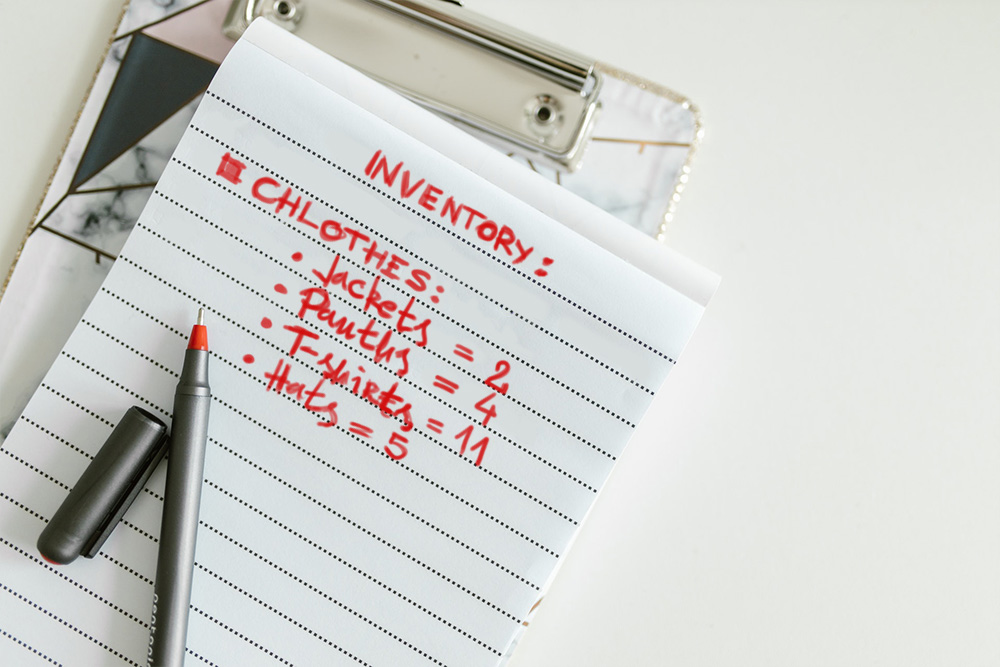 INVENTORY:
CHLOTHES:
• Jackets = 2
• Pauths = 4
• T-shirts = 11
• Hats = 5